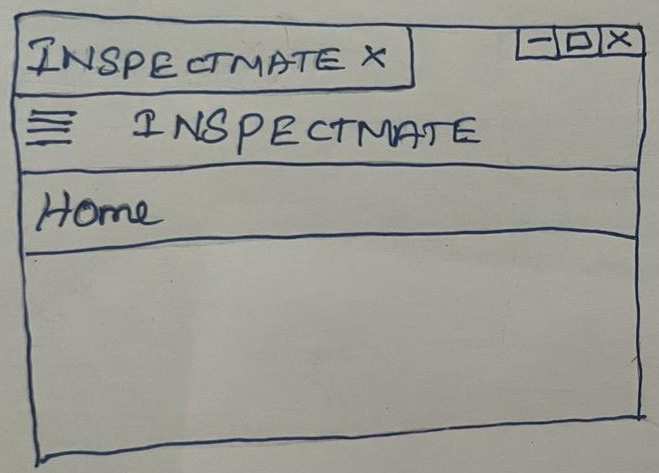 INSPECTMATE X
INSPECTMATE
Home